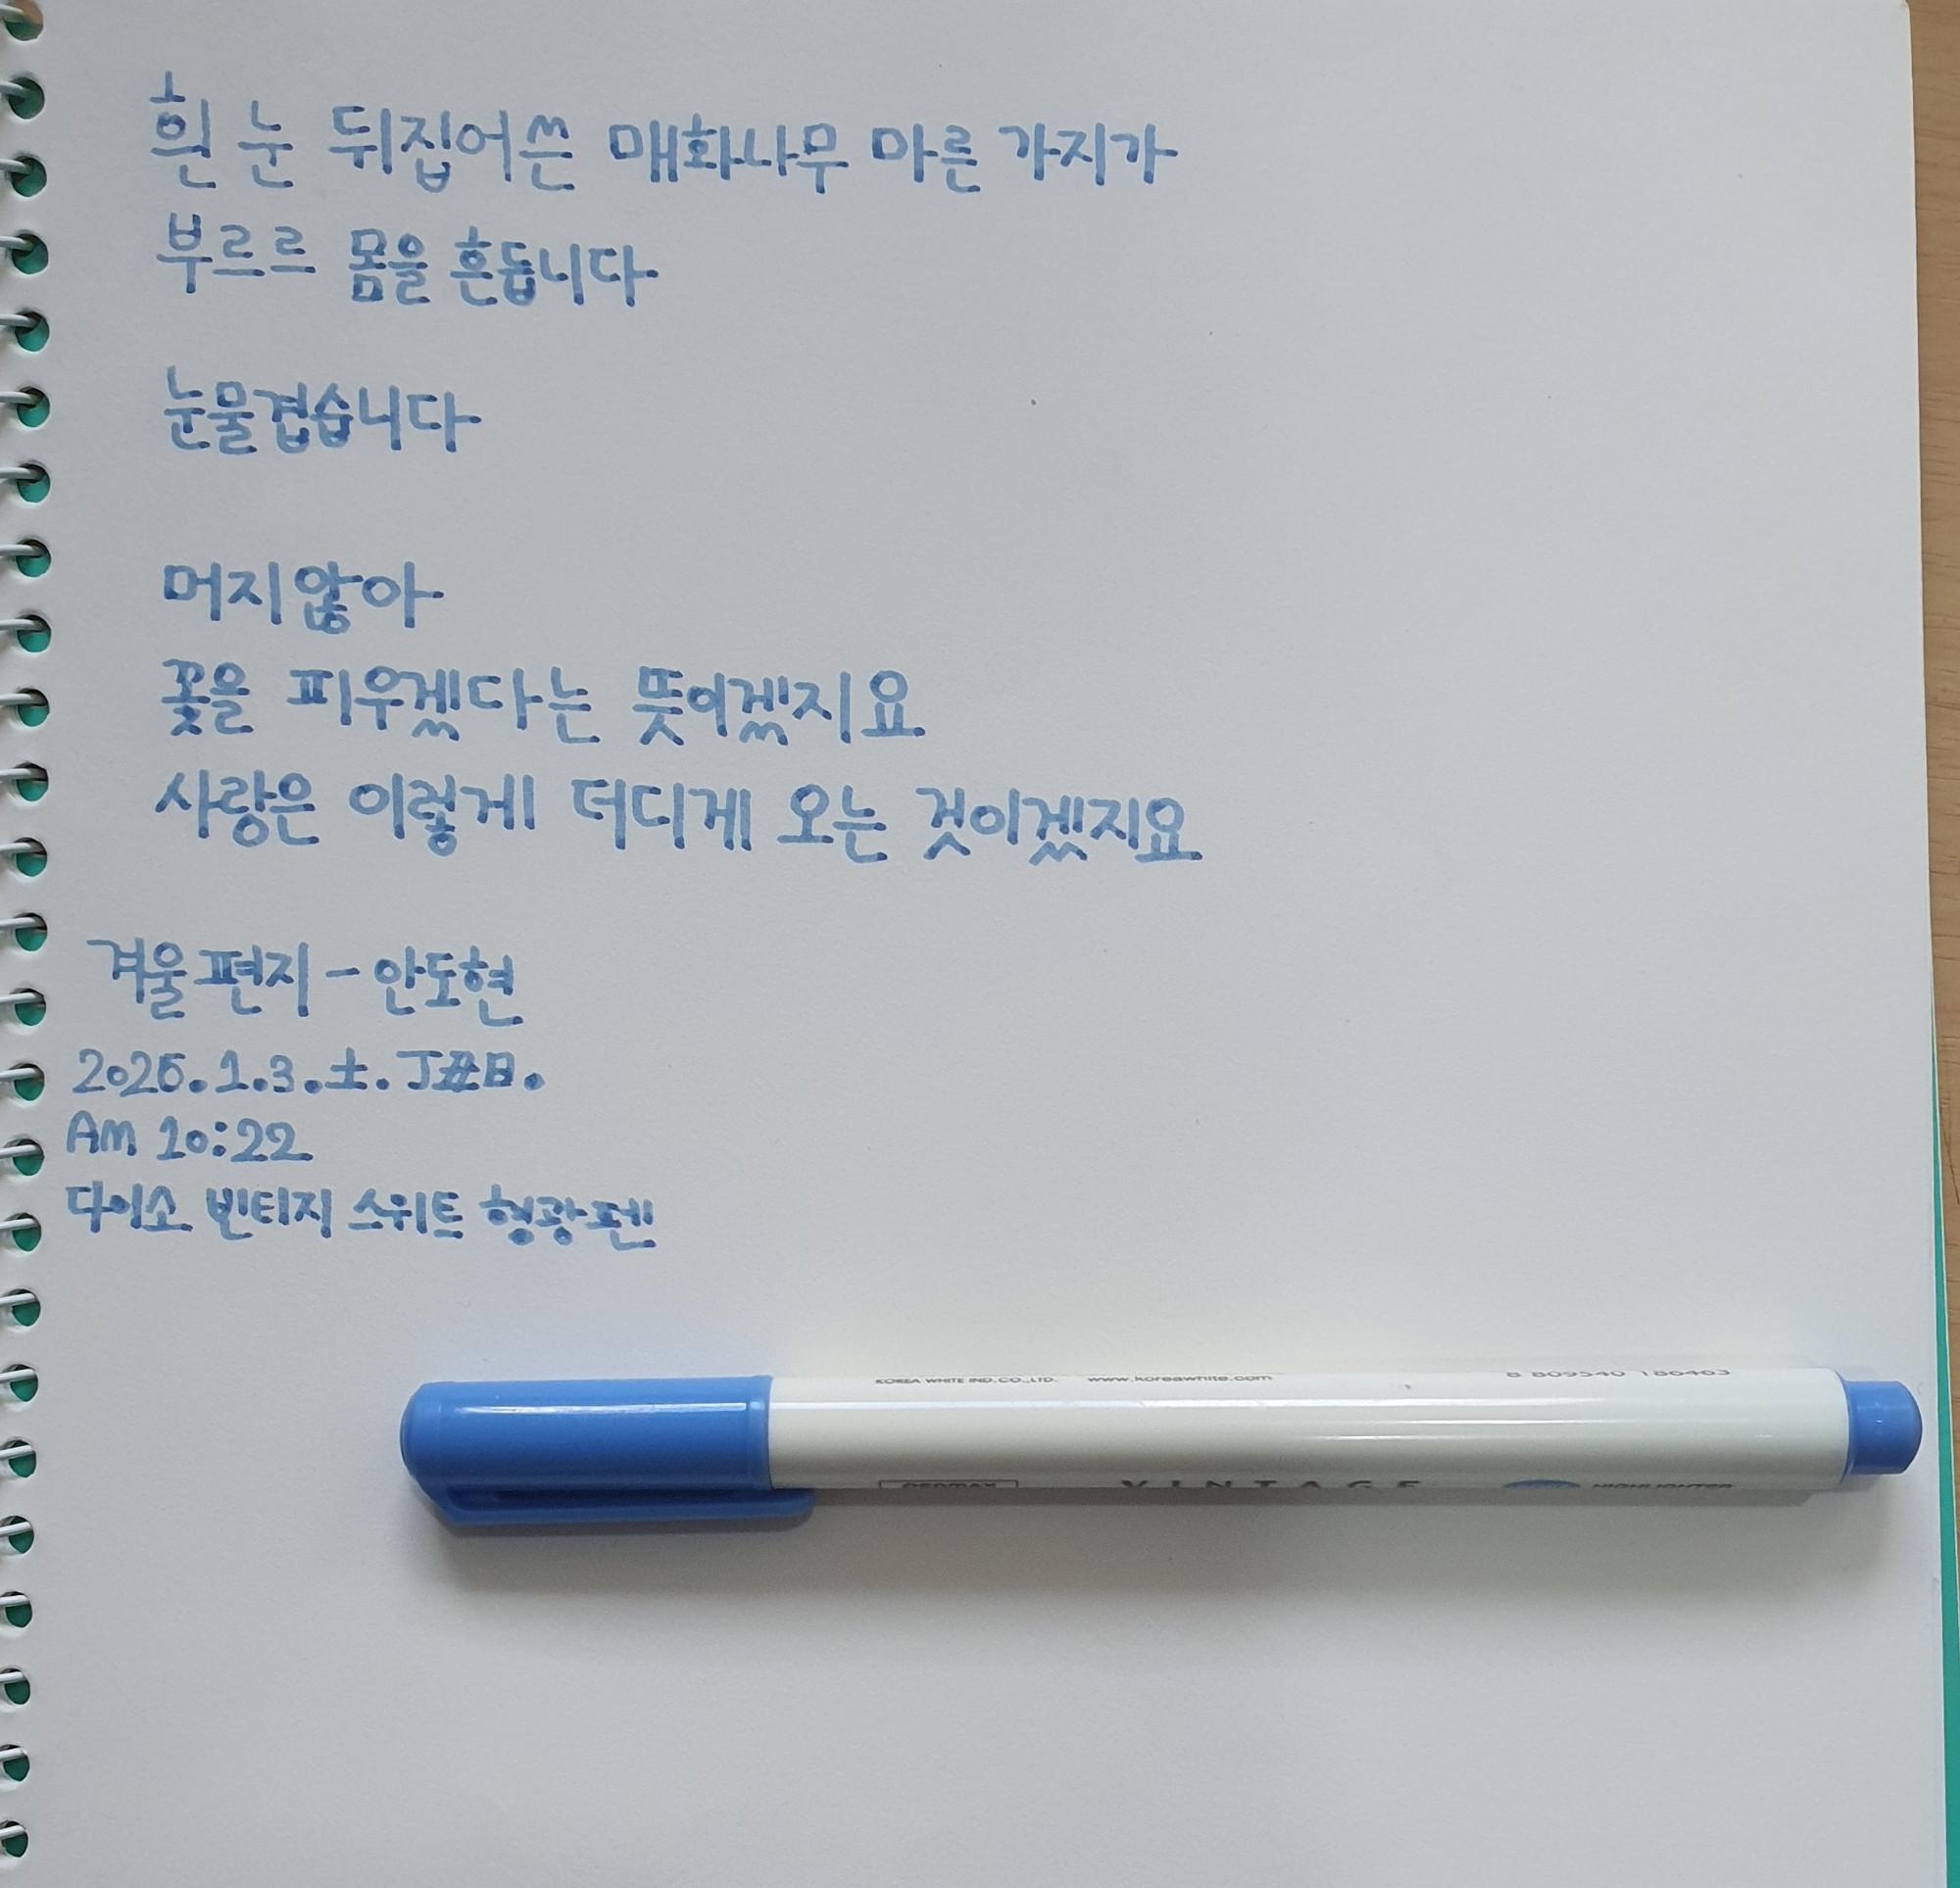 흰 눈 뒤집어쓴 매화나무 마른 가지가
부르르 몸을 흔듭니다
눈물겹습니다
머지않아
꽃을 피우겠다는 뜻이겠지요
사랑은 이렇게 더디게 오는 것이겠지요
겨울편지 - 안도현
2026.1.3.土.丁丑日.
AM 10:22
다이소 빈티지 스위트 형광펜
KOREA WHITE IND. CO.,LTD. www.koreawhite.com 8 809540 186463
VINTAGE HIGHLIGHTER